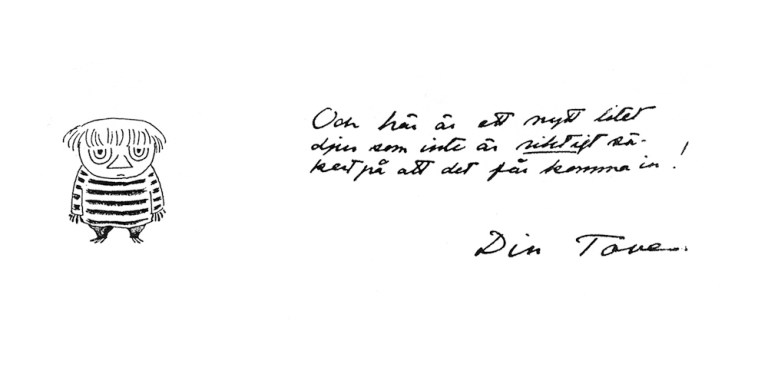 Och här är ett nytt litet
djur som inte är riktigt sä-
kert på att det får komma in!
Din Tove.